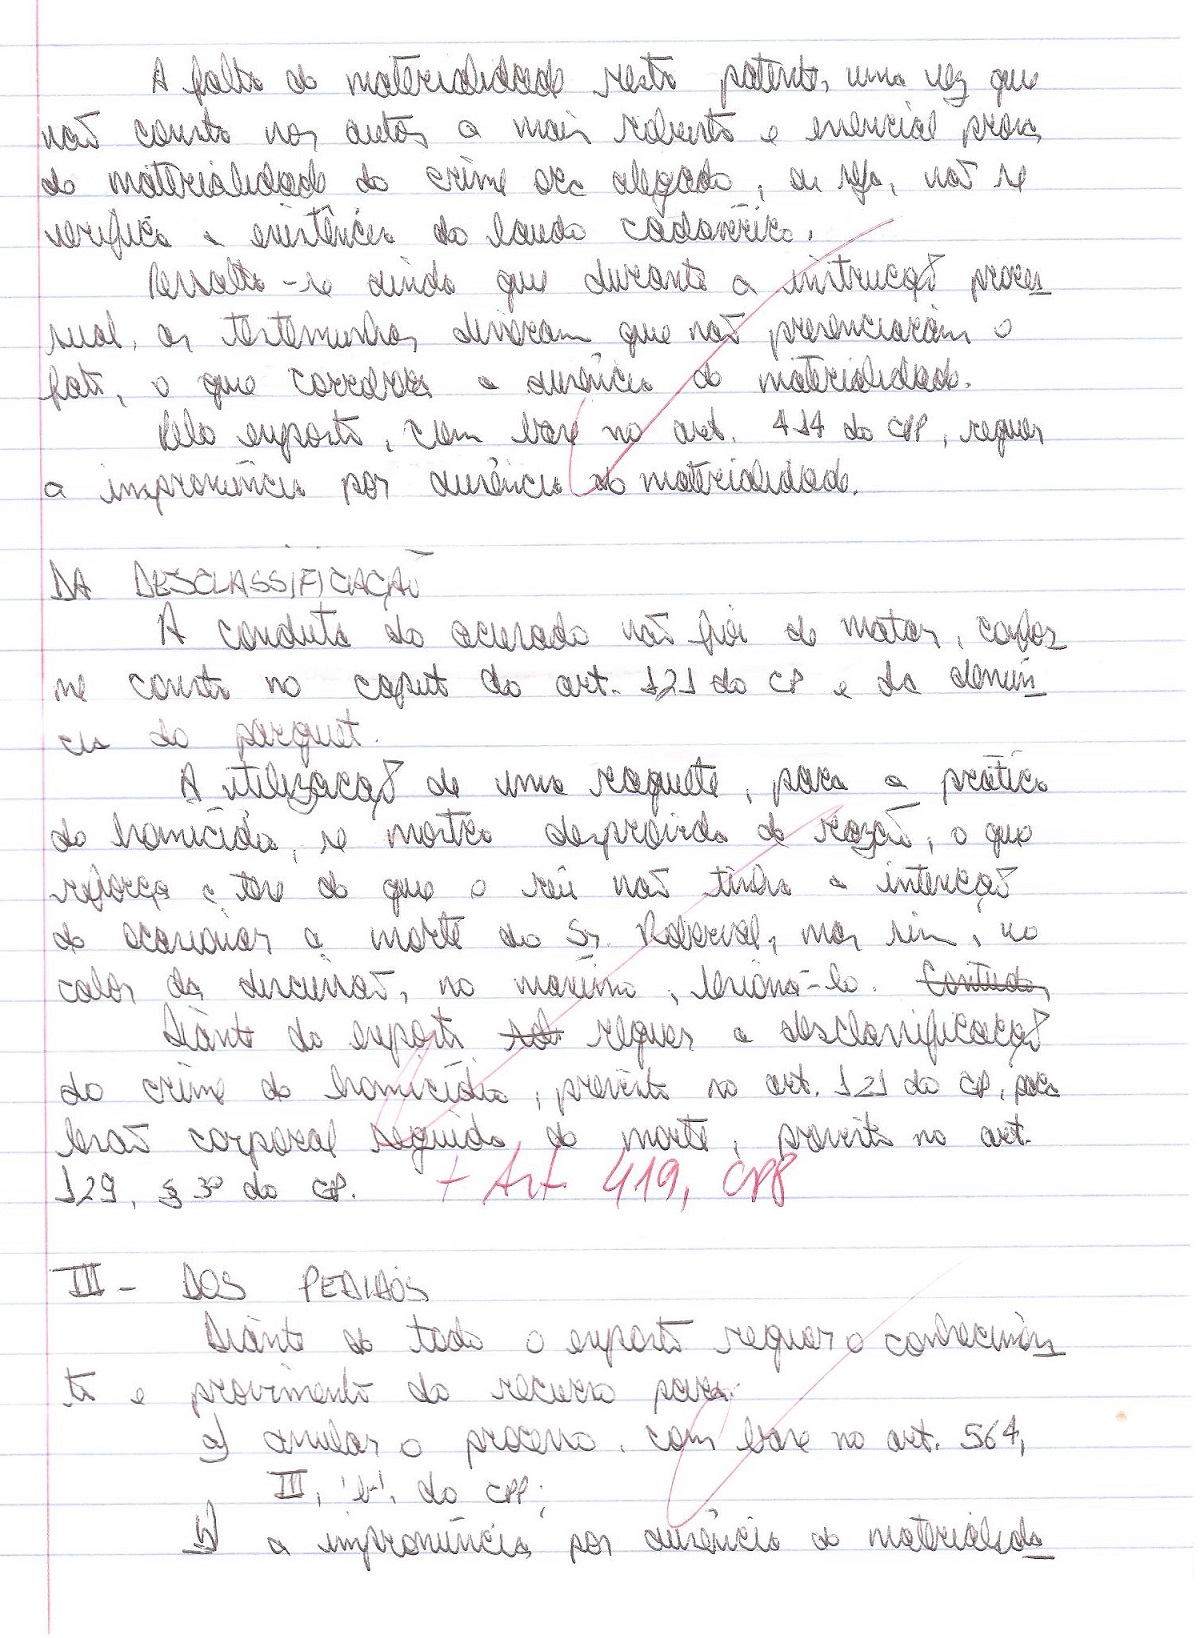 A falta de materialidade resta patente, uma vez que
não consta nos autos a mais robusta e essencial prova
da materialidade do crime ora alegado, ou seja, não se
verifica a existência do laudo cadavérico.
Ressalta-se ainda que durante a instrução proces
sual, as testemunhas disseram que não presenciaram o
fato, o que corrobora a ausência de materialidade.
Pelo exposto, com base no art. 414 do CPP, requer
a impronúncia por ausência de materialidade.
DA DESCLASSIFICAÇÃO
A conduta do acusado não foi de matar, confor
me consta no caput do art. 121 do CP e da denún
cia do parquet.
A utilização de uma raquete, para a prática
do homicídio, se mostra desprovida de razão, o que
reforça a tese de que o réu não tinha a intenção
de ocasionar a morte do Sr. Roberval, mas sim, no
calor da discussão, no máximo, lesioná-lo. Contudo,
Diante do exposto requer a desclassificação
do crime de homicídio, previsto no art. 121 do CP, para
lesão corporal seguida de morte, previsto no art.
129, § 3º do CP. + Art. 419, CPP
III - DOS PEDIDOS
Diante de todo o exposto requer o conhecimen
to e provimento do recurso para:
a) anular o processo, com base no art. 564,
III, 'b', do CPP;
b) a impronúncia por ausência de materialida